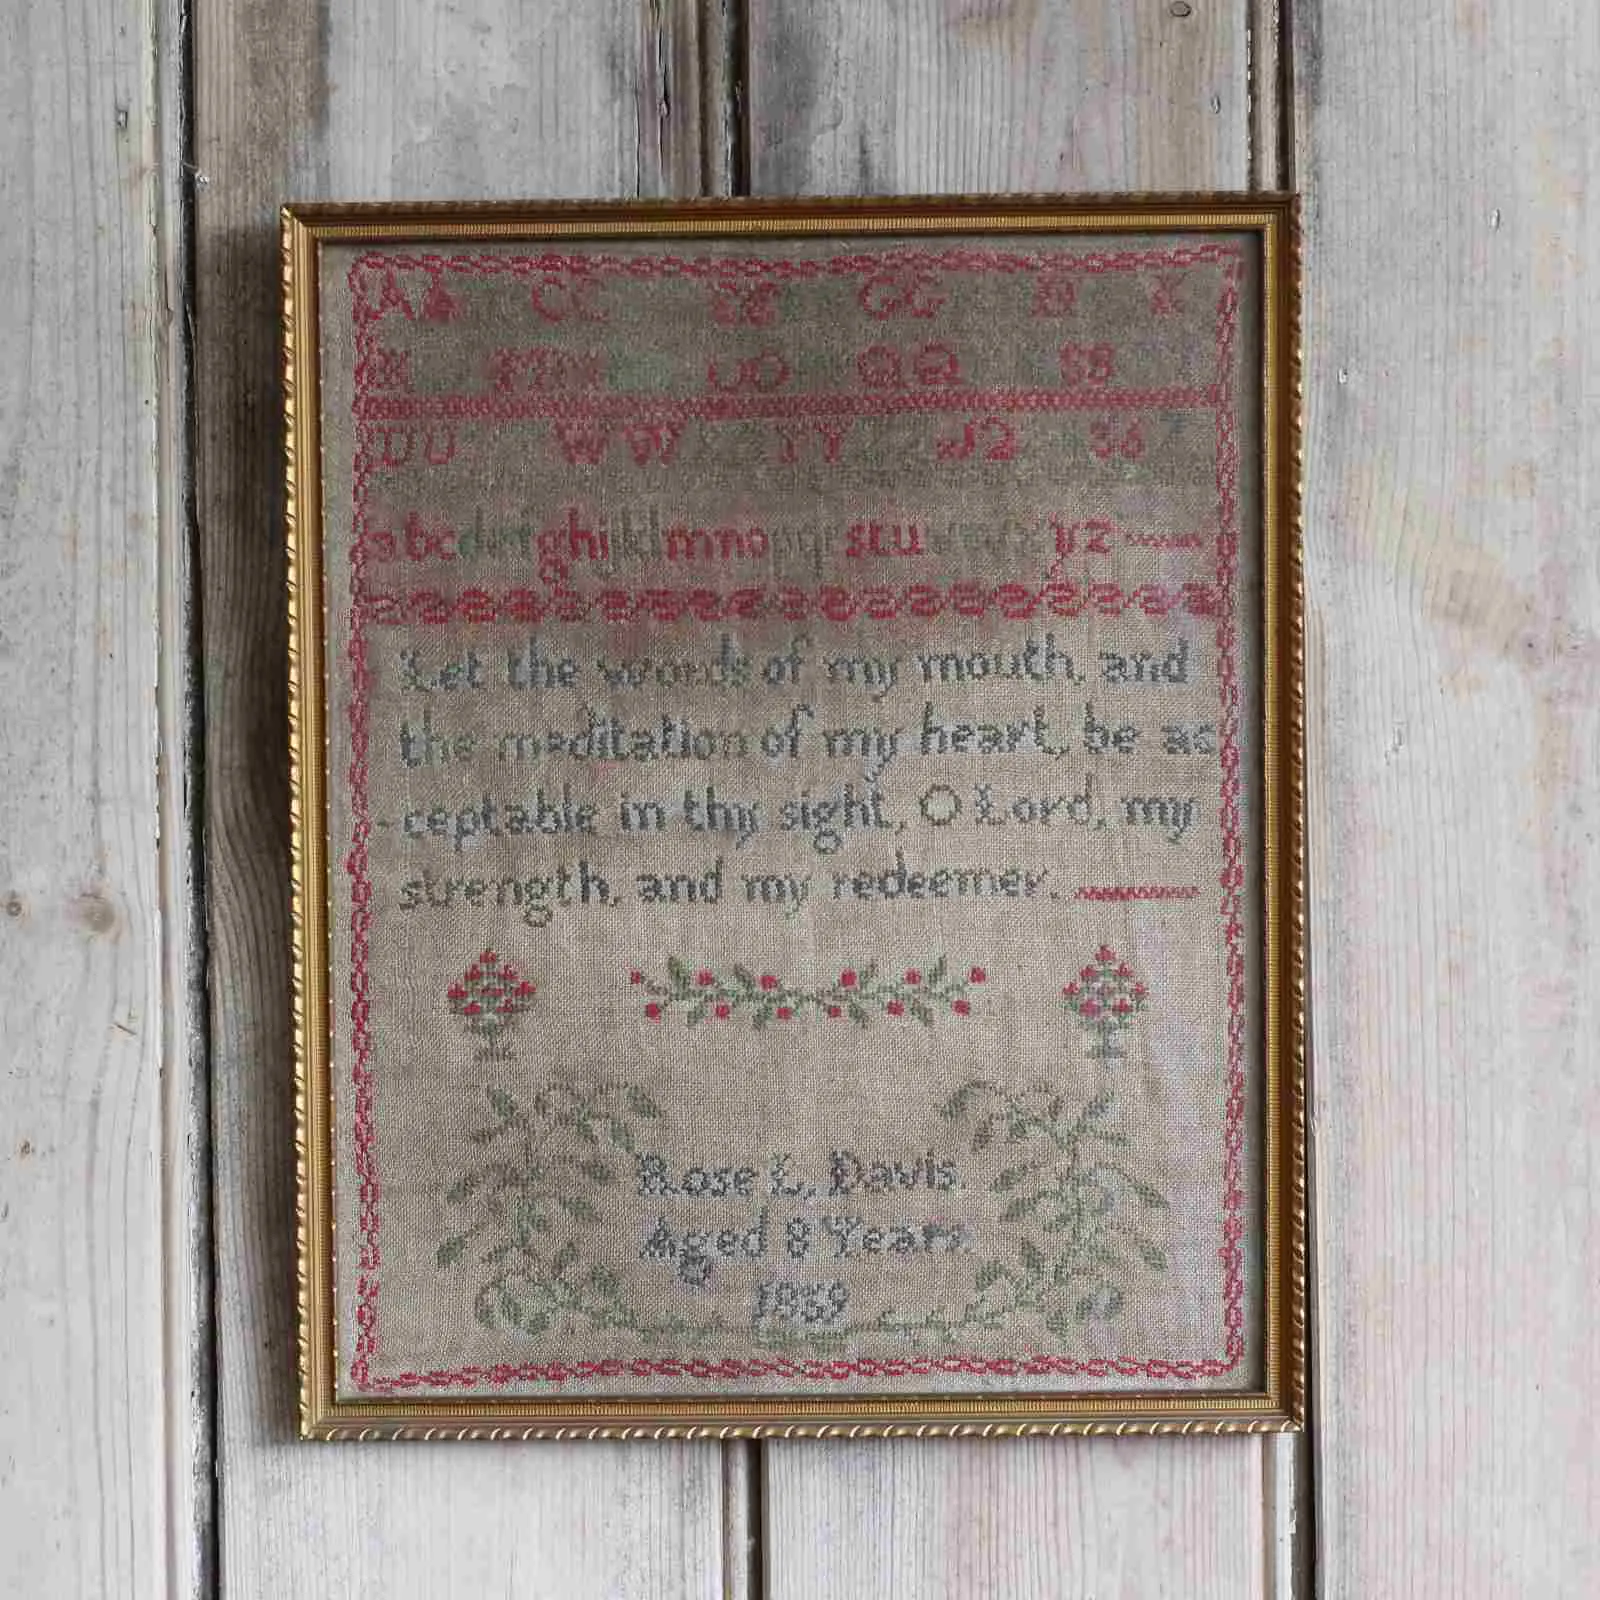 AA CC EE GG K
OO QQ SS
UU WW YY
abcdefghijklmnopqrstu yz
Let the words of my mouth, and
the meditation of my heart, be ac
-ceptable in thy sight, O Lord, my
strength, and my redeemer.
Rose L. Davis
Aged 8 Years
1869